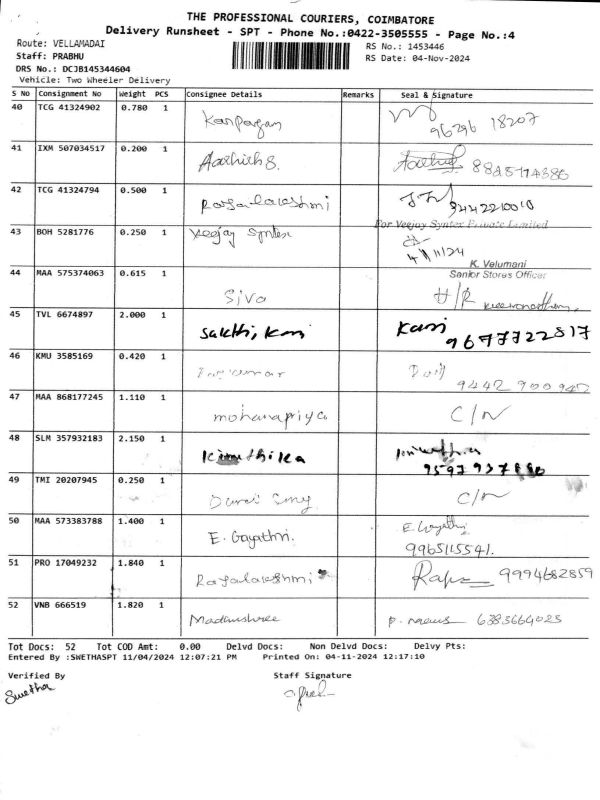 THE PROFESSIONAL COURIERS, COIMBATORE
Delivery Runsheet - SPT - Phone No.:0422-3505555 - Page No.:4
Route: VELLAMADAI RS No.: 1453446
Staff: PRABHU RS Date: 04-Nov-2024
DRS No.: DCJB145344604
Vehicle: Two Wheeler Delivery
S No Consignment No Weight PCS Consignee Details Remarks Seal & Signature
40 TCG 41324902 0.780 1
96296 18207
41 IXM 507034517 0.200 1 Aashish S.
42 TCG 41324794 0.500 1 Rajalakshmi
9442210010
For Veejay Syntex Private Limited
43 BOH 5281776 0.250 1 Veejay Syntex
4/11/24
K. Velumani
Senior Stores Officer
44 MAA 575374063 0.615 1 Siva H/R
45 TVL 6674897 2.000 1 Sakthi, Kani Kani
9677722817
46 KMU 3585169 0.420 1
9442 900940
47 MAA 868177245 1.110 1 mohanapriya C/N
48 SLM 357932183 2.150 1 Kiruthika
49 TMI 20207945 0.250 1 C/N
50 MAA 573383788 1.400 1 E. Gayathri. E. Gayathri
9965115541.
51 PRO 17049232 1.840 1 Rajalakshmi 9994682859
52 VNB 666519 1.820 1 Madhushree 6383664023
Tot Docs: 52 Tot COD Amt: 0.00 Delvd Docs: Non Delvd Docs: Delvy Pts:
Entered By :SWETHASPT 11/04/2024 12:07:21 PM Printed On: 04-11-2024 12:17:10
Verified By Staff Signature
Swetha